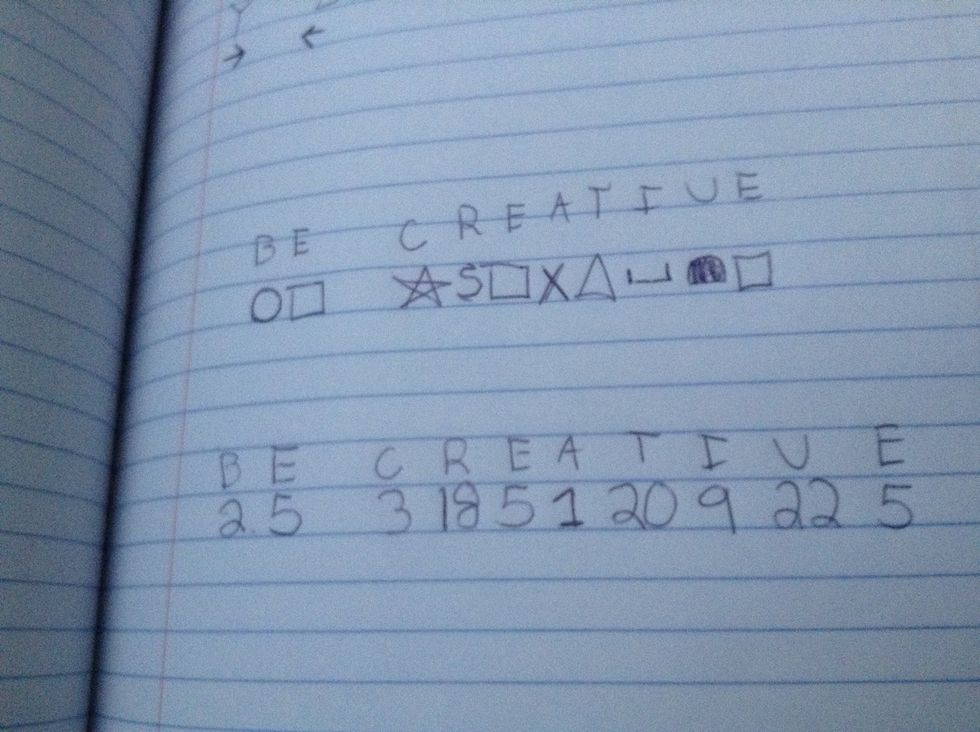 BE CREATIVE
○□ ☆S□X△⎵■□
BE CREATIVE
2.5 3 18 5 1 20 9 22 5